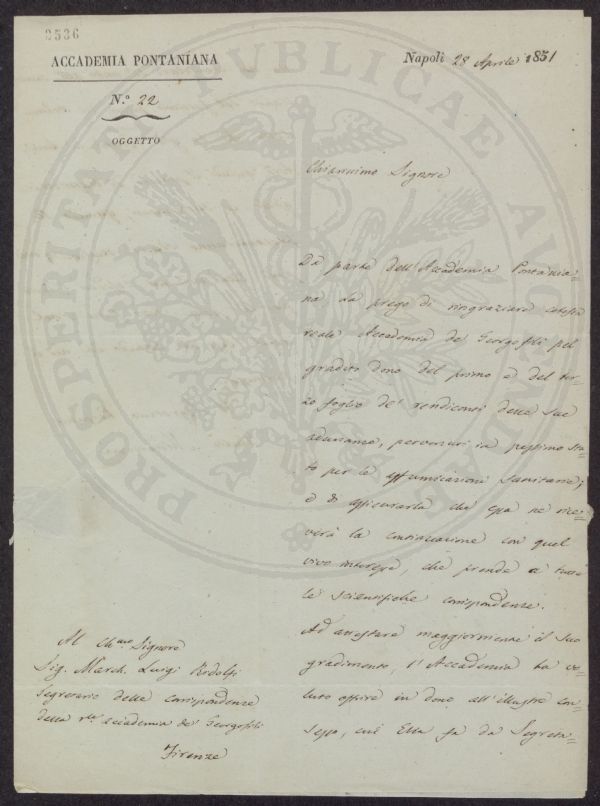 2536
ACCADEMIA PONTANIANA
Napoli 28 Aprile 1851
N.° 22
OGGETTO
Chiarissimo Signore
Da parte dell'Accademia Pontania=
na La prego di ringraziare cotesta
reale Accademia de' Georgofili pel
gradito dono del primo e del ter=
zo foglio de' rendiconti delle sue
adunanze, pervenuti in pessimo sta=
to per le affumicazioni sanitarie;
e di assicurarla che essa ne rice=
verà la continuazione con quel
vivo interesse, che prende a tutte
le scientifiche corrispondenze.
Ad attestare maggiormente il suo
gradimento, l'Accademia ha vo=
luto offrire in dono all'illustre con=
sesso, cui Ella fa da Segreta=
Al Ch.mo Signore
Sig. March. Luigi Ridolfi
Segretario delle corrispondenze
della r.le accademia de' Georgofili
Firenze
PROSPERITATI PVBLICAE AVGENDAE